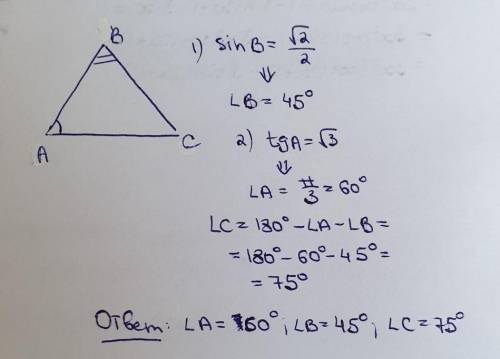 B
A
C
1) sin B = √2/2
⇓
∠B = 45°
2) tg A = √3
⇓
∠A = π/3 = 60°
∠C = 180° - ∠A - ∠B =
= 180° - 60° - 45° =
= 75°
Ответ: ∠A = 60°; ∠B = 45°; ∠C = 75°